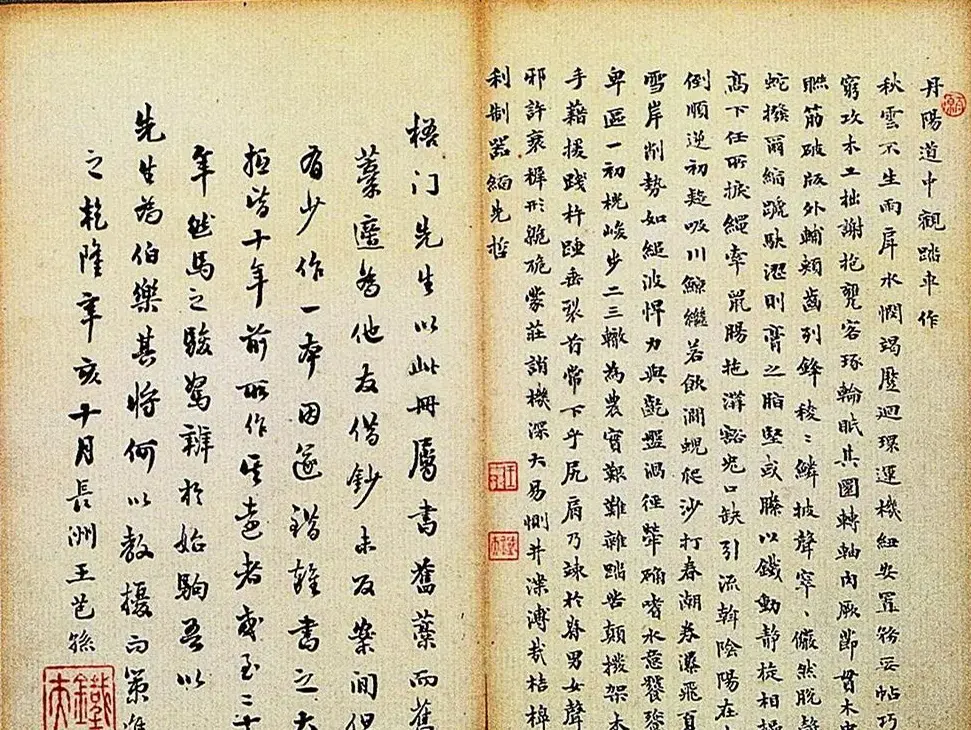 丹陽道中觀踏車作
秋雲不生雨岸水憫竭歷迴環運機紐安置務妥帖巧
窮攻木工拙謝抱甕客琢輪眂其圜轉軸內厥節貫木
聯筋破版外輔頰齒列鋒稜〻鱗披聲窣〻儼然脫
蛇撥爾縮蹏駃澀則膏之脂堅或縢以鐵動靜旋相
高下任所捩繩牽鼠腸拖溝豁兜口缺引流斡陰陽在
倒順逆初趁吸川鯨繼若飲澗蜺爬沙打春潮卷瀑飛
雪岸削勢如縋波悍力與齕盤渦徑犖确嗜水意饕
卑區一初梐峻步二三轍為農實艱難雜踏皆顛撥架木
手藉援踐杵踵垂裂首常下乎尻肩乃竦於脊男女聲
邪許衰穉形脆𦠄蒙莊誚機深大易惻井渫溥哉桔槔
利制器緬先哲
梧門先生以此冊屬書舊藁而舊
藁遽為他友借鈔未及案間但
有少作一本因遂錯雜書之大
抵皆十年前所作其逺者或至二十
年然馬之駿駑辨於始駒吾以
先生為伯樂其將何以教擾而策進
之乾隆辛亥十月長洲王芑孫